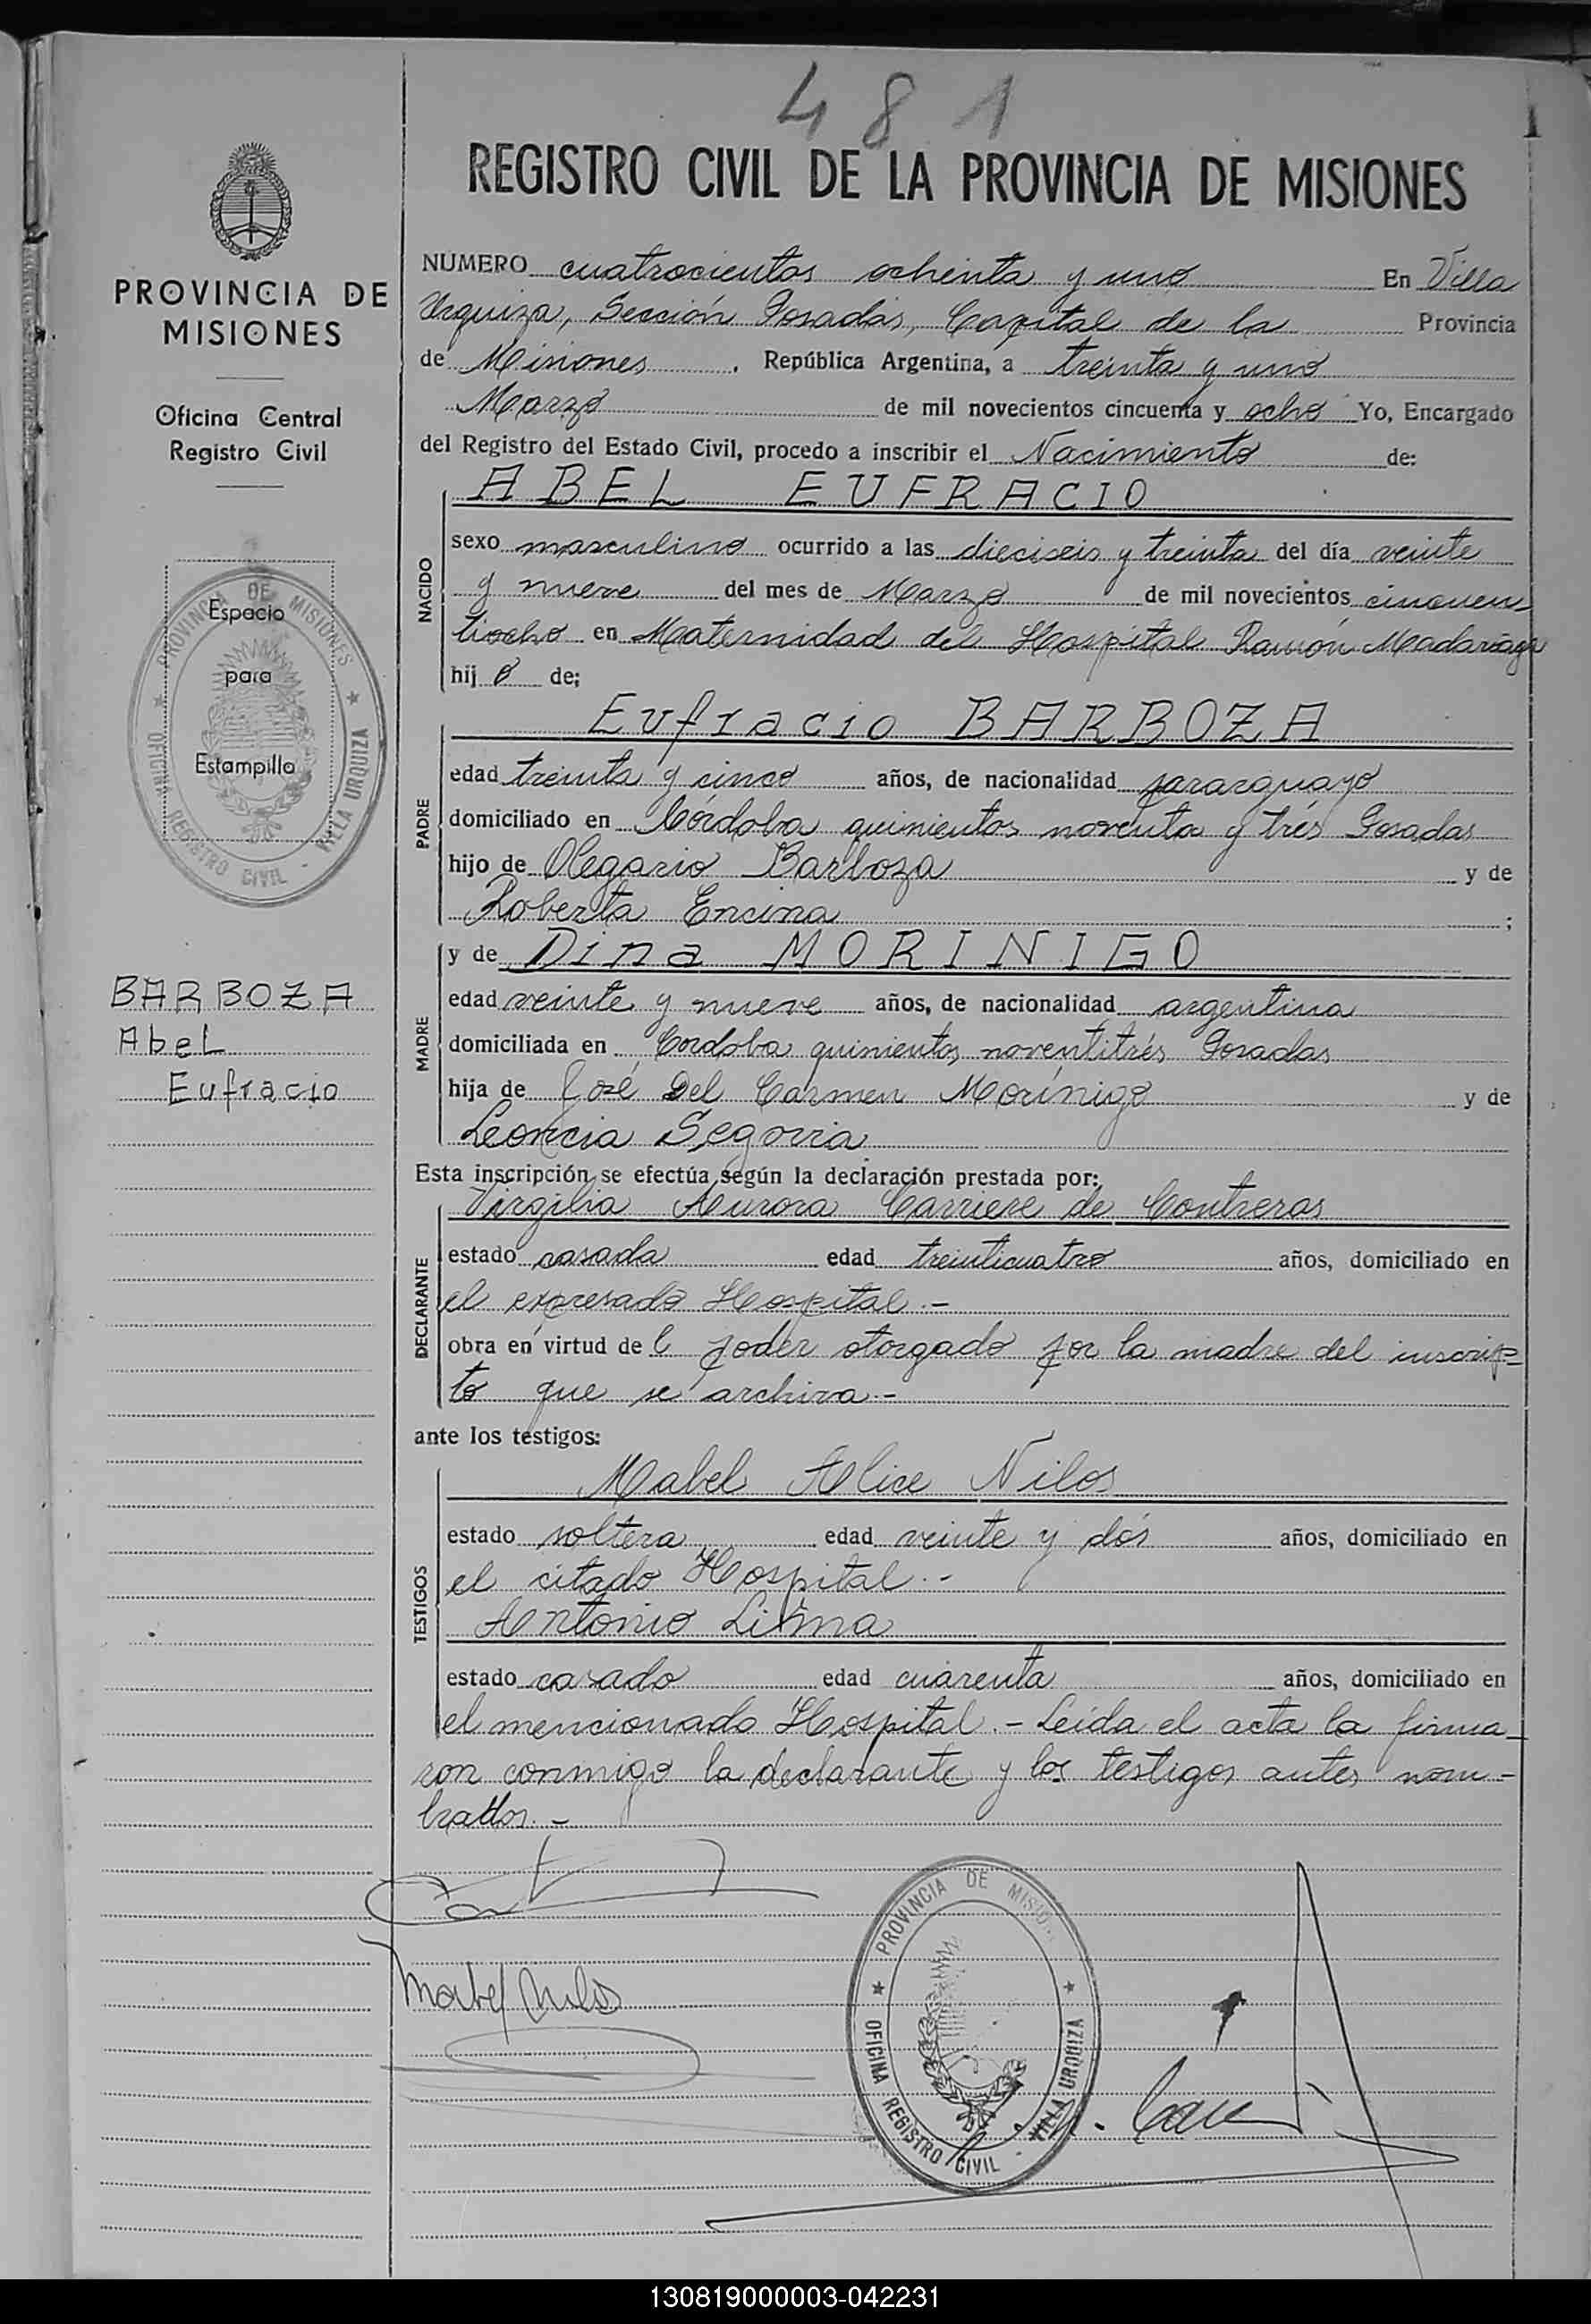 481
1
REGISTRO CIVIL DE LA PROVINCIA DE MISIONES
PROVINCIA DE
MISIONES
Oficina Central
Registro Civil
Espacio
para
Estampilla
PROVINCIA DE MISIONES
OFICINA REGISTRO CIVIL - VILLA URQUIZA
BARBOZA
Abel
Eufracio
NUMERO cuatrocientos ochenta y uno En Villa
Urquiza, Sección Posadas, Capital de la Provincia
de Misiones . República Argentina, a treinta y uno
Marzo de mil novecientos cincuenta y ocho Yo, Encargado
del Registro del Estado Civil, procedo a inscribir el Nacimiento de:
NACIDO
ABEL EUFRACIO
sexo masculino ocurrido a las dieciseis y treinta del día veinte
y nueve del mes de Marzo de mil novecientos cincuen-
tiocho en Maternidad del Hospital Ramón Madariaga
hij o de;
PADRE
Eufracio BARBOZA
edad treinta y cinco años, de nacionalidad pararguayo
domiciliado en Córdoba quinientos noventa y trés Posadas
hijo de Olegario Barboza y de
Roberta Encina ;
MADRE
y de Dina MORINIGO
edad veinte y nueve años, de nacionalidad argentina
domiciliada en Cordoba quinientos noventitrés Posadas
hija de José Del Carmen Morínigo y de
Leoncia Segovia
Esta inscripción se efectúa según la declaración prestada por:
DECLARANTE
Virgilia Aurora Carriere de Contreras
estado casada edad treinticuatro años, domiciliado en
el expresado Hospital.-
obra en virtud de l poder otorgado por la madre del inscrip=
to que se archiva.-
ante los testigos:
TESTIGOS
Mabel Alice Nilos
estado soltera edad veinte y dós años, domiciliado en
el citado Hospital.-
Antonio Lima
estado casado edad cuarenta años, domiciliado en
el mencionado Hospital.- Leida el acta la firma-
ron conmigo la declarante y los testigos antes nom-
brados.-
Mabel Nilos
PROVINCIA DE MISIONES
OFICINA REGISTRO CIVIL - VILLA URQUIZA
130819000003-042231